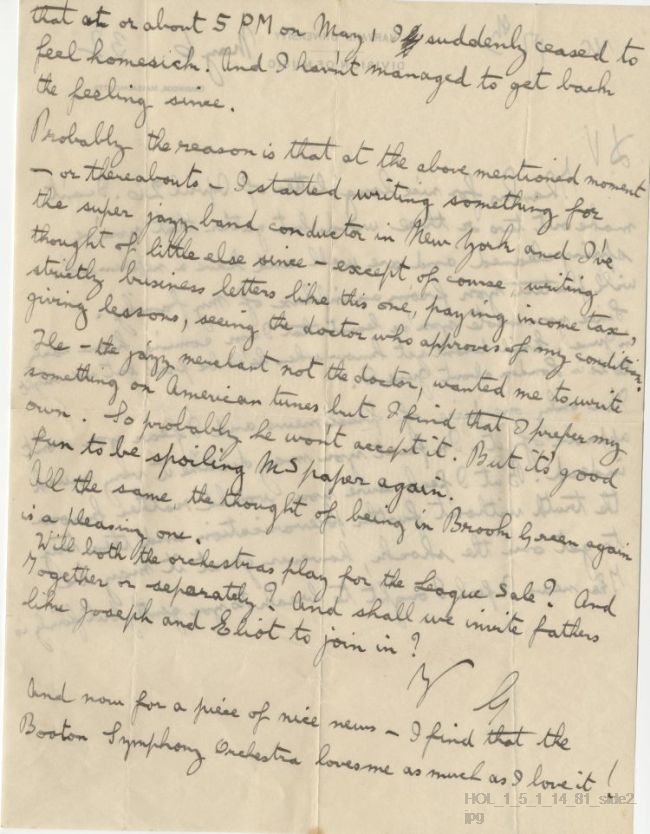 that at or about 5 PM on May 1 I suddenly ceased to
feel homesick. And I havn't managed to get back
the feeling since.
Probably the reason is that at the above mentioned moment
– or thereabouts – I started writing something for
the super jazz band conductor in New York and I've
thought of little else since – except of course, writing
strictly business letters like this one, paying income tax,
giving lessons, seeing the doctor who approves of my condition.
He – the jazz merchant not the doctor, wanted me to write
something on American tunes but I find that I prefer my
own. So probably he won't accept it. But it's good
fun to be spoiling MS paper again.
All the same, the thought of being in Brook Green again
is a pleasing one.
Will both the orchestras play for the League Sale? And
together or separately? And shall we invite fathers
like Joseph and Eliot to join in?
G
And now for a piece of nice news – I find that the
Boston Symphony Orchestra loves me as much as I love it!
HOL_1_5_1_14_81_side2.
jpg